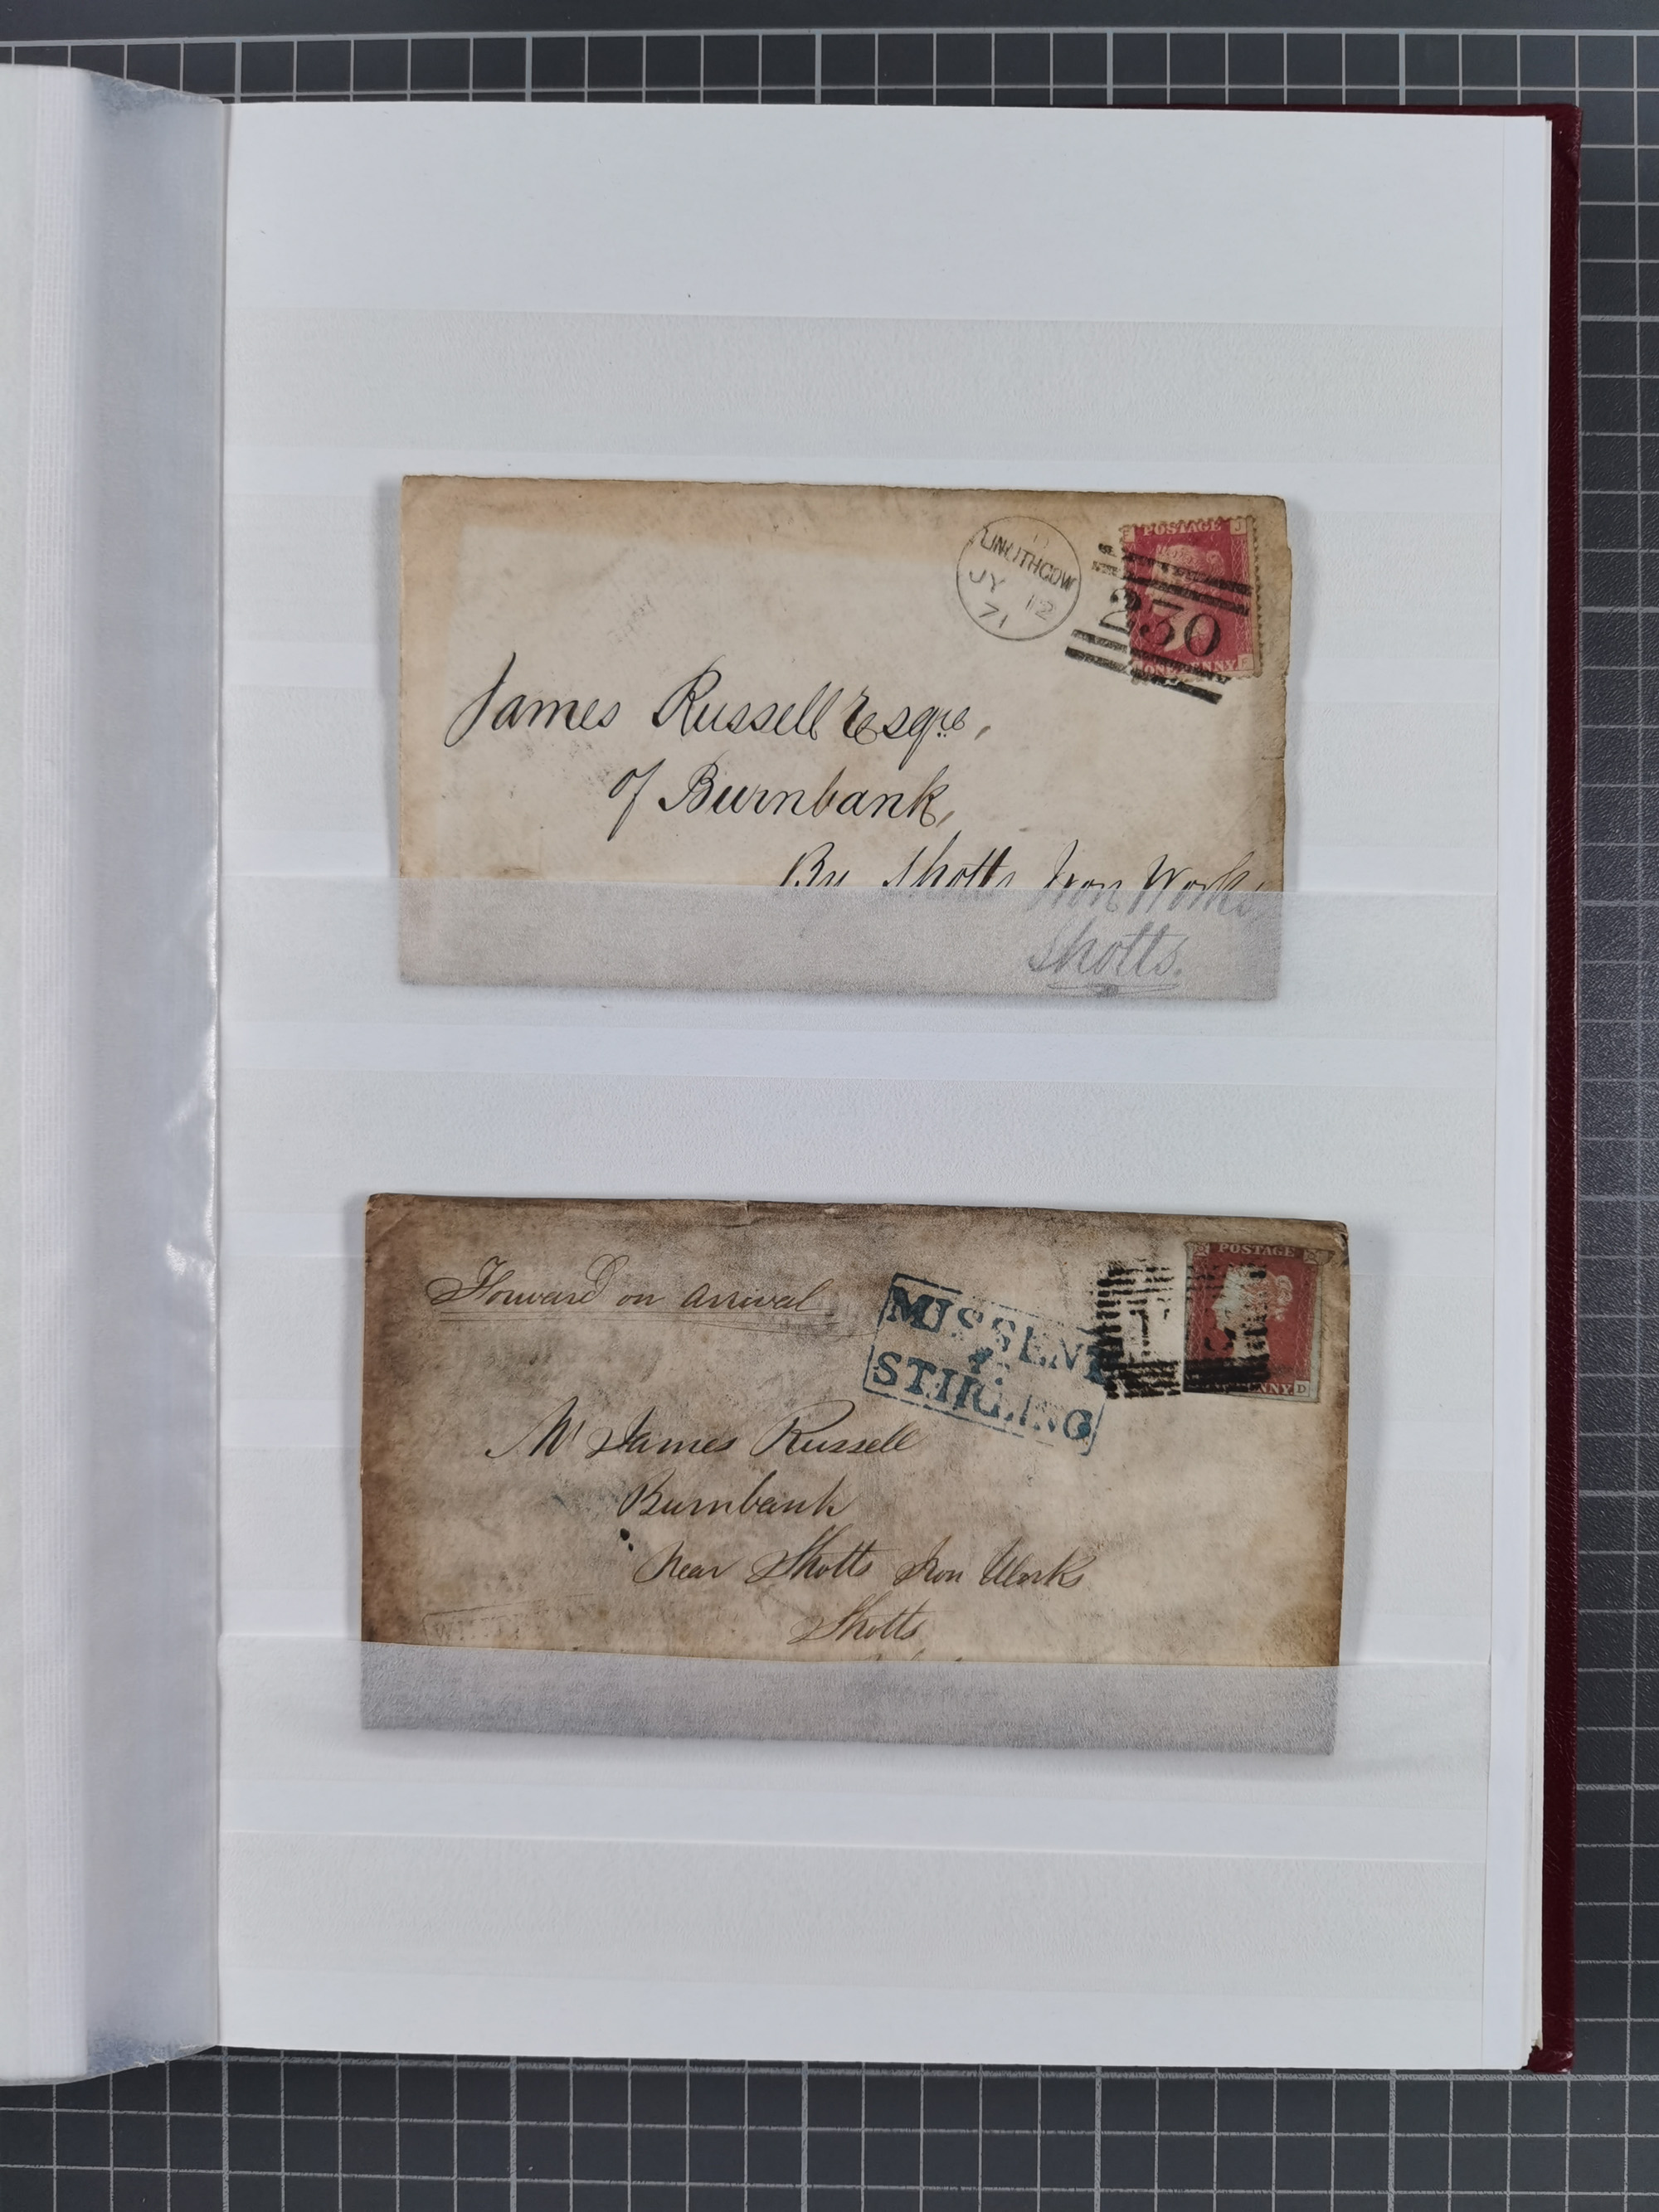 LINLITHGOW
JY 12
71
POSTAGE
J
230
ONE PENNY
F
James Russell Esqre,
of Burnbank,
By Shotts Iron Works,
Shotts.
Forward on arrival
MISSENT
TO
STIRLING
POSTAGE
D
Mr James Russell
Burnbank
Near Shotts Iron Works
Shotts